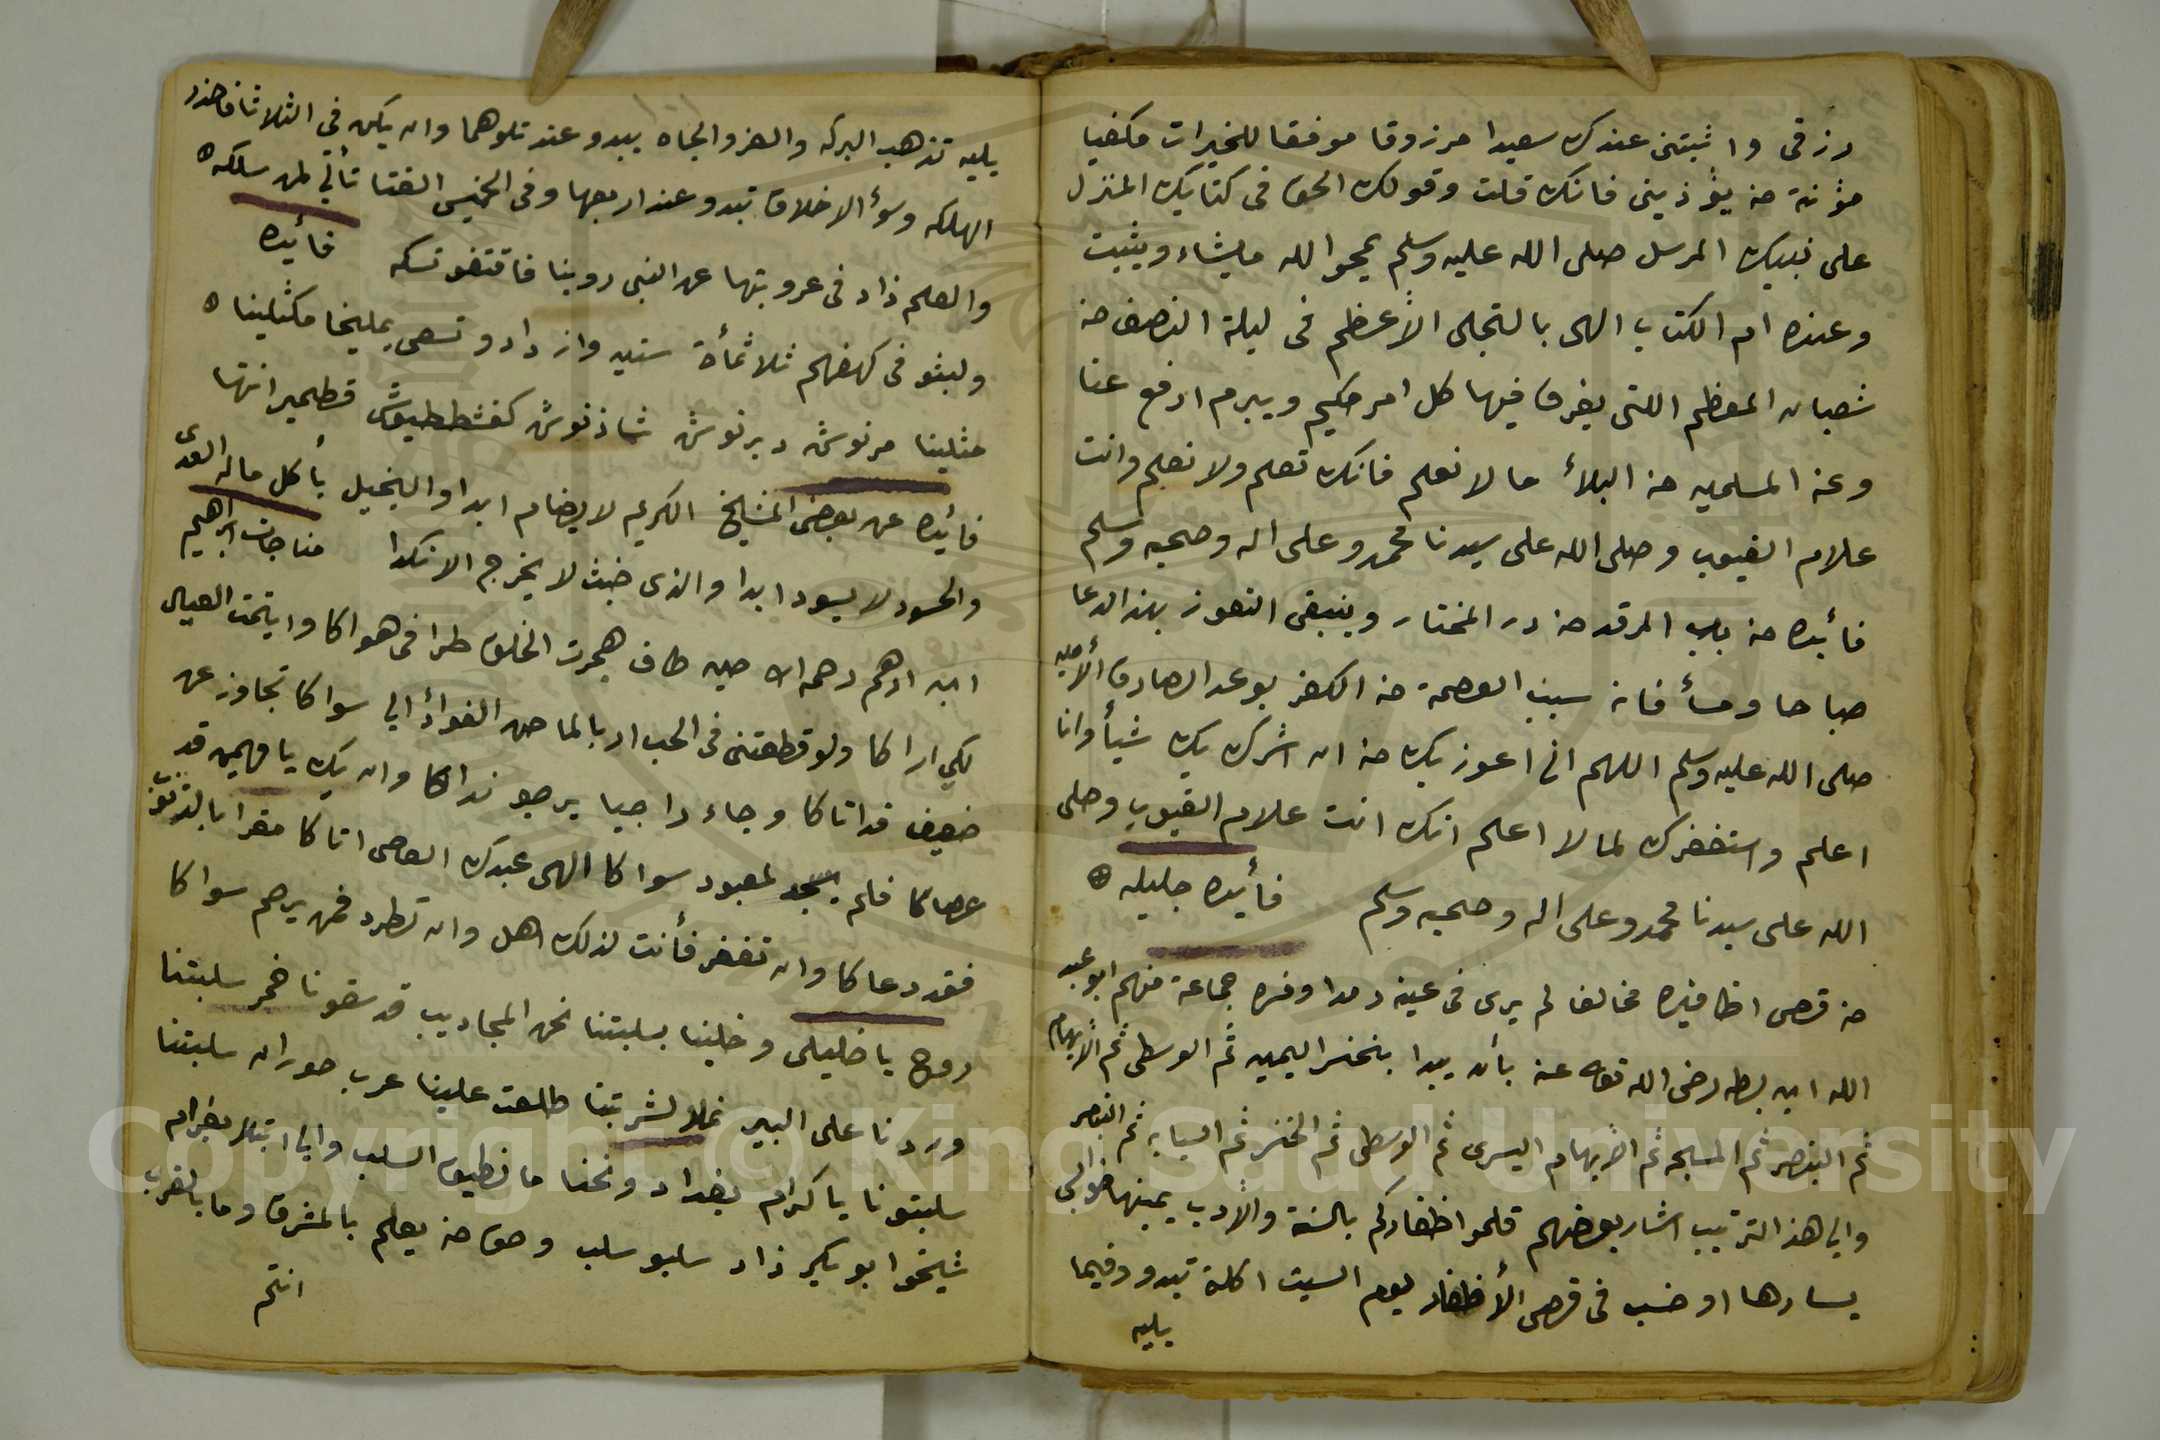 رزقى واثبتنى عندك سعيدا مرزوقا موفقا للخيرات مكفيا
مؤنة من يؤذينى فانك قلت وقولك الحق فى كتابك المنزل
على نبيك المرسل صلى الله عليه وسلم يمحوالله مايشاء ويثبت
وعنده ام الكتاب الهى بالتجلى الأعظم فى ليلة النصف من
شعبان المعظم اللتى يفرق فيها كل امر حكيم ويبرم ارفع عنا
وعن المسلمين من البلاء مالا نعلم فانك تعلم ولا نعلم وانت
علام الغيوب وصلى الله على سيدنا محمد وعلى اله وصحبه وسلم
فأيده من باب المرتد من در المختار وينبغى التعوز بهذ الدعا
صباحا ومسأ فانه سبب العصمة من الكفر بوعد الصادق الأمين
صلى الله عليه وسلم اللهم انى اعوز بك من ان اشرك بك شيأ وانا
اعلم واستغفرك لما لا اعلم انك انت علام الغيوب وصلى
الله على سيدنا محمد وعلى اله وصحبه وسلم فأيده جليله
من قص اظافيره مخالفا لم يرى فى عينه رمدا وفسره جماعة منهم ابو عبد
الله ابن بطه رضى الله تعالى عنه بأن يبدا بخنصر اليمين ثم الوسطى ثم الأبهام
ثم البنصر ثم المسبحه ثم ابهام اليسرى ثم الوسطى ثم الخنصر ثم السبابه ثم البنصر
والى هذ الترتيب اشار بعضهم قلموا اظفاركم بالسنة والأدب يمينها خوابس
يسارها اوخسب فى قص الأظفار يوم السبت اكلة تبدو وفيما
يليه
يليه تذهب البركه والعز والجاه يبدو عند تلوهما وان يكن في الثلاثا فاحذر
الهلكه وسؤ الاخلاق تبدو عند اربعها وفى الخميس الغنا تأتي لمن سلكه
والعلم زاد فى عروبتها عن النبى روينا فاقتفو نسكه فأيده
ولبثو فى كهفهم ثلاثمأة سنين وازدادو تسعى يمليخا مكثلينا
مثلينا مرنوش دبرنوش شاذنوش كفشططيوش قطمير انتها
فأيده عن بعض المشايخ الكريم لايضام ابدا والبخيل يأكل ماله العدى
والحسود لايسود ابدا والذى خبث لا يخرج الا نكدا مناجات ابراهيم
ابن ادهم رحمه الله حين طاف هجرت الخلق طرا فى هواكا وايتمت العيال
لكي اراكا ولو قطعتنى فى الحب اربا لما حن الفوأد الي سواكا تجاوز عن
ضعيف قد اتاكا وجاء راجيا يرجو نداكا وان يك يا مهيمن قد
عصاكا فلم يسجد لمعبود سواكا الهى عبدك العاصى اتاكا مقرا بالذنوب
فقد دعاكا وان تغفر فأنت لذلك اهل وان تطرد فمن يرحم سواكا
روح يا خليلى وخلينا بسلبتنا نحن المجاديب قد سقونا خمر سلبتنا
وردنا على البير نملا لشربتنا طلعت علينا عرب حوران سلبتنا
سلبتونا يا كرام بغداد ونحنا ما نطيق السلب والى ابتلا بغرام
شيخوا ابو بكير زاد سلبو سلب وحق من يعلم بالمشرق وما بالغرب
انتم
Copyright © King Saud University